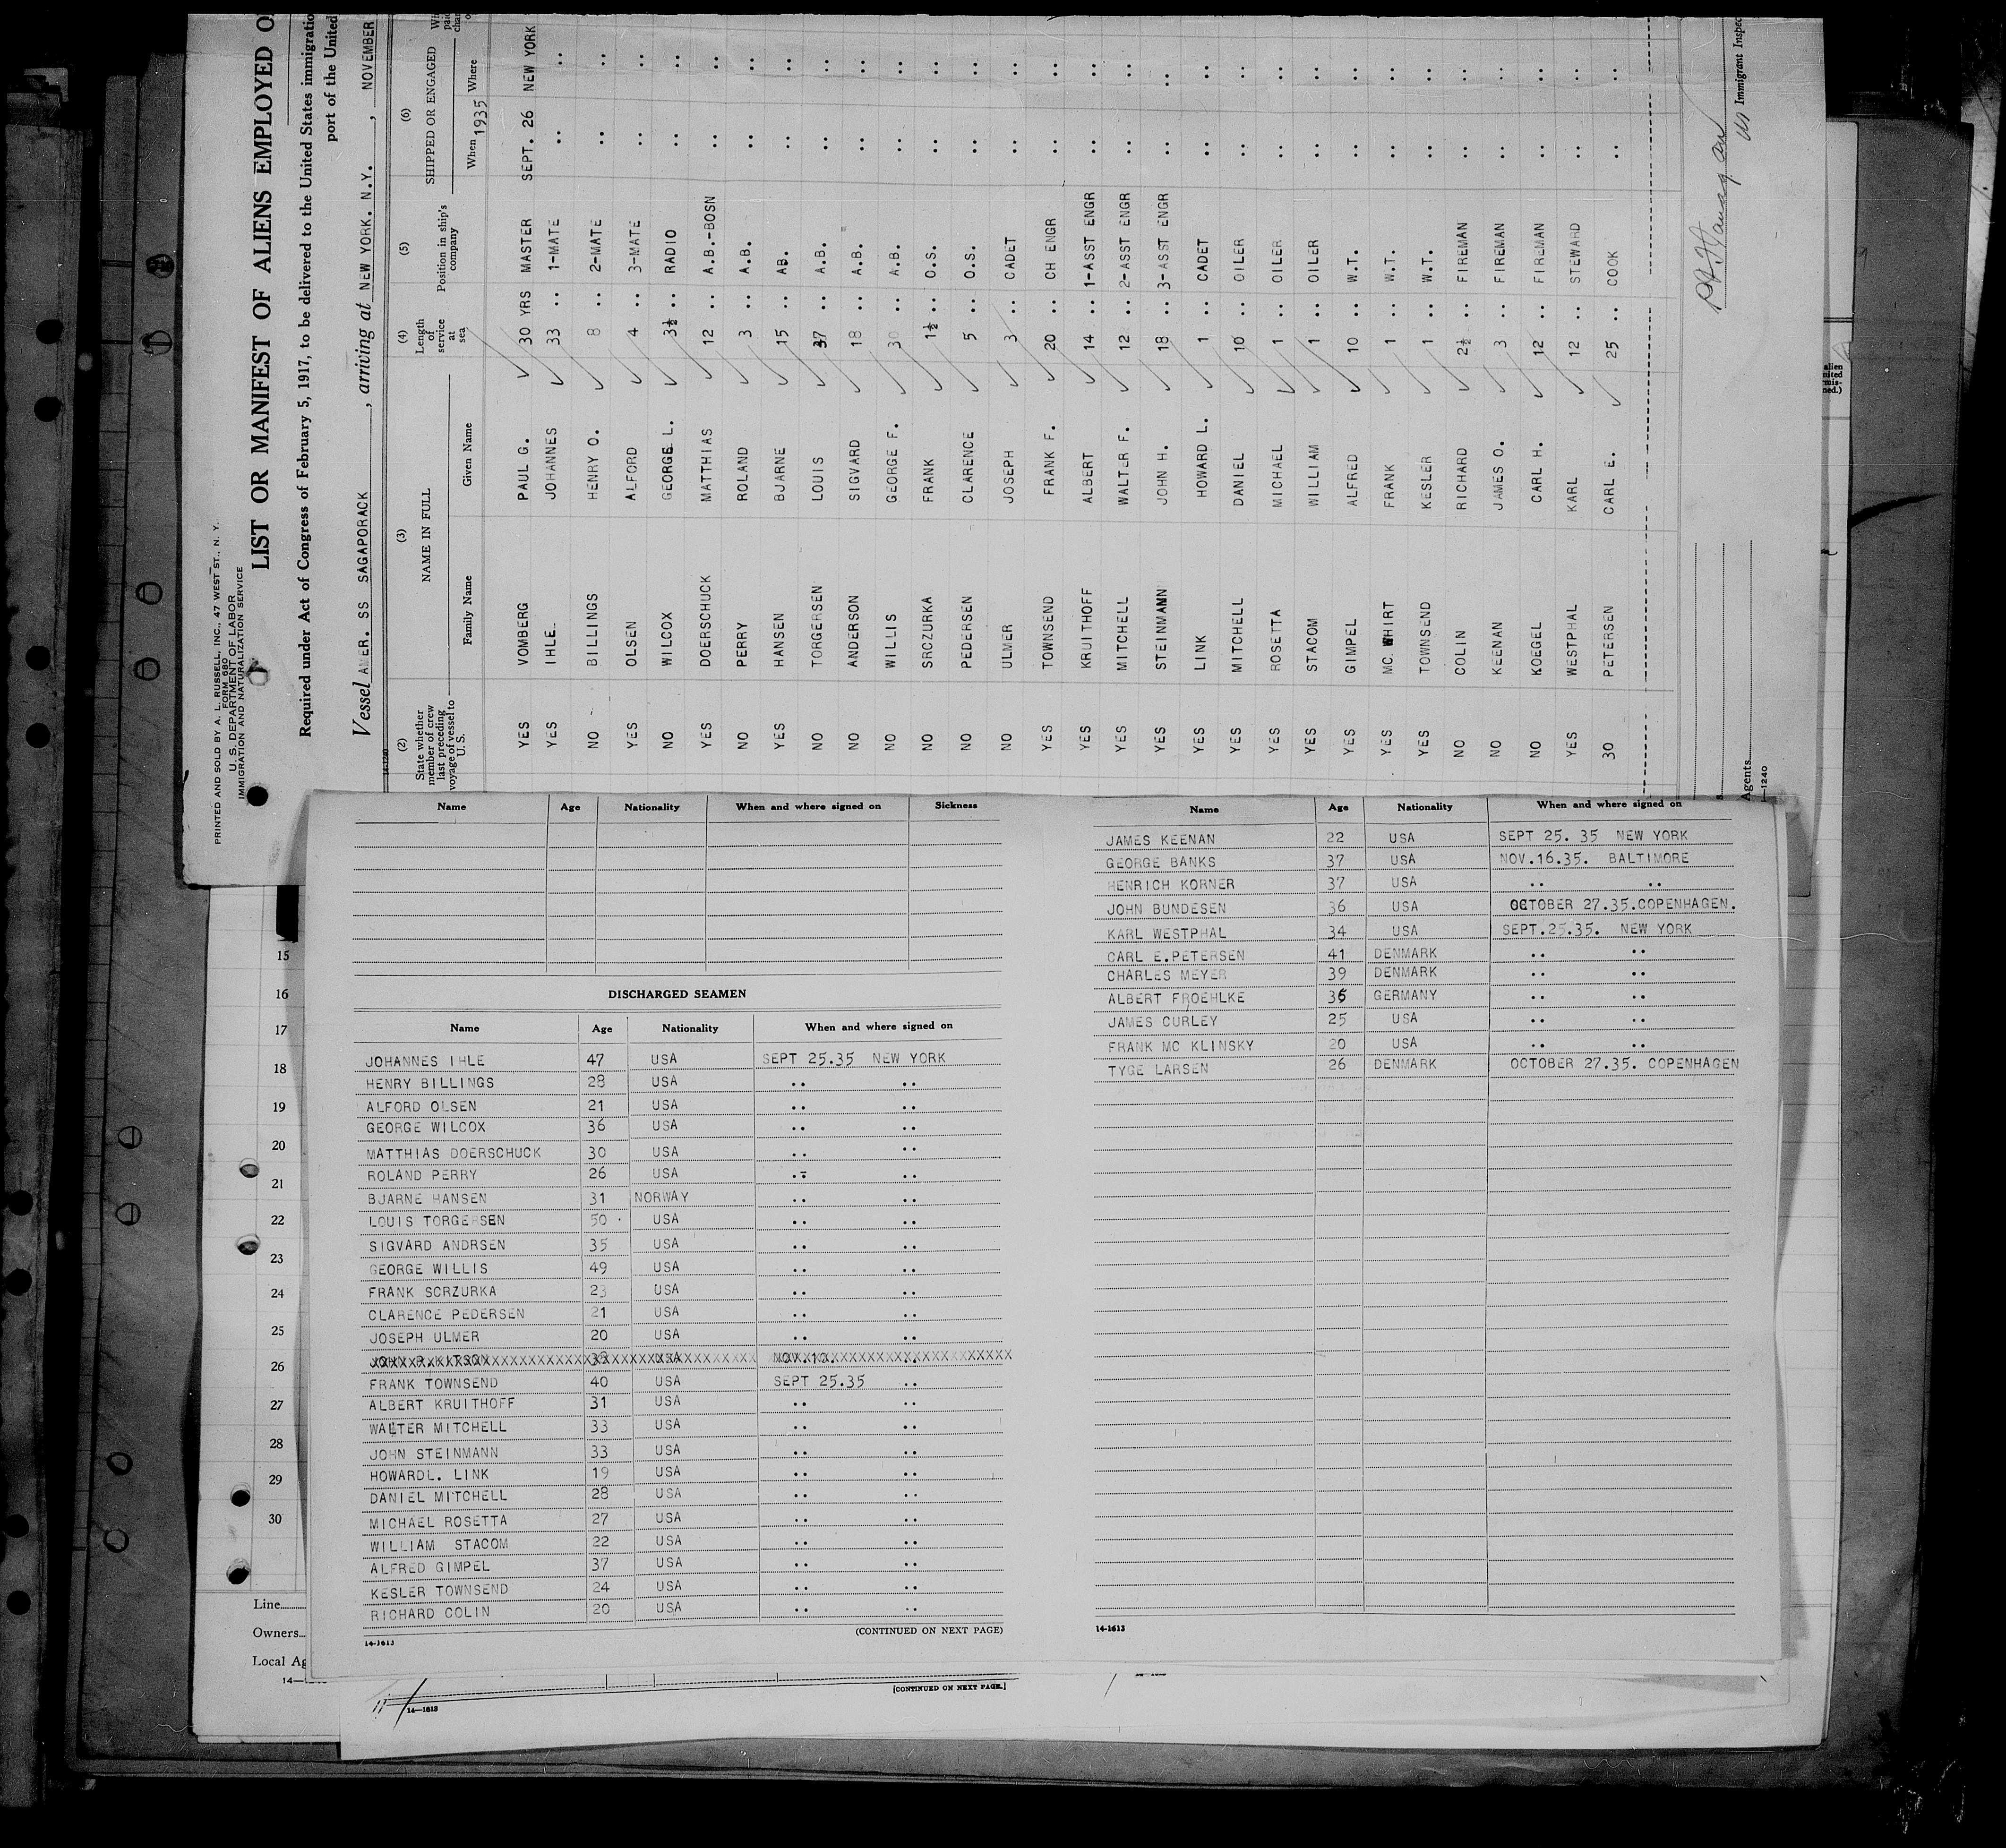 PRINTED AND SOLD BY A. L. RUSSELL, INC., 47 WEST ST., N. Y.
FORM 680
U. S. DEPARTMENT OF LABOR
IMMIGRATION AND NATURALIZATION SERVICE
LIST OR MANIFEST OF ALIENS EMPLOYED O
Required under Act of Congress of February 5, 1917, to be delivered to the United States immigratio
port of the United
Vessel AMER. SS SAGAPORACK , arriving at NEW YORK. N.Y. , NOVEMBER
(2) (3) (4) (5) (6)
State whether member of crew last preceding voyage of vessel to U.S. NAME IN FULL Length of service at sea Position in ship's company SHIPPED OR ENGAGED
Family Name Given Name When 1935 Where
YES VOMBERG PAUL G. 30 YRS MASTER SEPT. 26 NEW YORK
YES IHLE JOHANNES 33 .. 1-MATE .. ..
NO BILLINGS HENRY O. 8 .. 2-MATE .. ..
YES OLSEN ALFORD 4 .. 3-MATE .. ..
NO WILCOX GEORGE L. 3½ .. RADIO .. ..
YES DOERSCHUCK MATTHIAS 12 .. A.B.-BOSN .. ..
NO PERRY ROLAND 3 .. A.B. .. ..
YES HANSEN BJARNE 15 .. AB. .. ..
NO TORGERSEN LOUIS 37 .. A.B. .. ..
NO ANDERSON SIGVARD 18 .. A.B. .. ..
NO WILLIS GEORGE F. 30 .. A.B. .. ..
NO SRCZURKA FRANK 1½ .. O.S. .. ..
NO PEDERSEN CLARENCE 5 .. O.S. .. ..
NO ULMER JOSEPH 3 .. CADET .. ..
YES TOWNSEND FRANK F. 20 .. CH ENGR .. ..
YES KRUITHOFF ALBERT 14 .. 1-ASST ENGR .. ..
YES MITCHELL WALTER F. 12 .. 2-ASST ENGR .. ..
YES STEINMANN JOHN H. 18 .. 3-ASST ENGR .. ..
YES LINK HOWARD L. 1 .. CADET .. ..
YES MITCHELL DANIEL 10 .. OILER .. ..
YES ROSETTA MICHAEL 1 .. OILER .. ..
YES STACOM WILLIAM 1 .. OILER .. ..
YES GIMPEL ALFRED 10 .. W.T. .. ..
YES MC.WHIRT FRANK 1 .. W.T. .. ..
YES TOWNSEND KESLER 1 .. W.T. .. ..
NO COLIN RICHARD 2½ .. FIREMAN .. ..
NO KEENAN JAMES O. 3 .. FIREMAN .. ..
NO KOEGEL CARL H. 12 .. FIREMAN .. ..
YES WESTPHAL KARL 12 .. STEWARD .. ..
30 PETERSEN CARL E. 25 .. COOK .. ..
Immigrant Inspec
Agents
—1240
Name Age Nationality When and where signed on Sickness
DISCHARGED SEAMEN
Name Age Nationality When and where signed on
JOHANNES IHLE 47 USA SEPT 25.35 NEW YORK
HENRY BILLINGS 28 USA .. ..
ALFORD OLSEN 21 USA .. ..
GEORGE WILCOX 36 USA .. ..
MATTHIAS DOERSCHUCK 30 USA .. ..
ROLAND PERRY 26 USA .. ..
BJARNE HANSEN 31 NORWAY .. ..
LOUIS TORGERSEN 50 USA .. ..
SIGVARD ANDRSEN 35 USA .. ..
GEORGE WILLIS 49 USA .. ..
FRANK SCRZURKA 23 USA .. ..
CLARENCE PEDERSEN 21 USA .. ..
JOSEPH ULMER 20 USA .. ..
FRANK TOWNSEND 40 USA SEPT 25.35 ..
ALBERT KRUITHOFF 31 USA .. ..
WALTER MITCHELL 33 USA .. ..
JOHN STEINMANN 33 USA .. ..
HOWARDL. LINK 19 USA .. ..
DANIEL MITCHELL 28 USA .. ..
MICHAEL ROSETTA 27 USA .. ..
WILLIAM STACOM 22 USA .. ..
ALFRED GIMPEL 37 USA .. ..
KESLER TOWNSEND 24 USA .. ..
RICHARD COLIN 20 USA .. ..
14-1613 (CONTINUED ON NEXT PAGE)
Name Age Nationality When and where signed on
JAMES KEENAN 22 USA SEPT 25. 35 NEW YORK
GEORGE BANKS 37 USA NOV.16.35. BALTIMORE
HENRICH KORNER 37 USA .. ..
JOHN BUNDESEN 36 USA OCTOBER 27.35.COPENHAGEN.
KARL WESTPHAL 34 USA SEPT.25.35. NEW YORK
CARL E.PETERSEN 41 DENMARK .. ..
CHARLES MEYER 39 DENMARK .. ..
ALBERT FROEHLKE 36 GERMANY .. ..
JAMES CURLEY 25 USA .. ..
FRANK MC KLINSKY 20 USA .. ..
TYGE LARSEN 26 DENMARK OCTOBER 27.35. COPENHAGEN
14-1613
15
16
17
18
19
20
21
22
23
24
25
26
27
28
29
30
Line
Owners
Local Ag
14—
[CONTINUED ON NEXT PAGE.]
14—1613